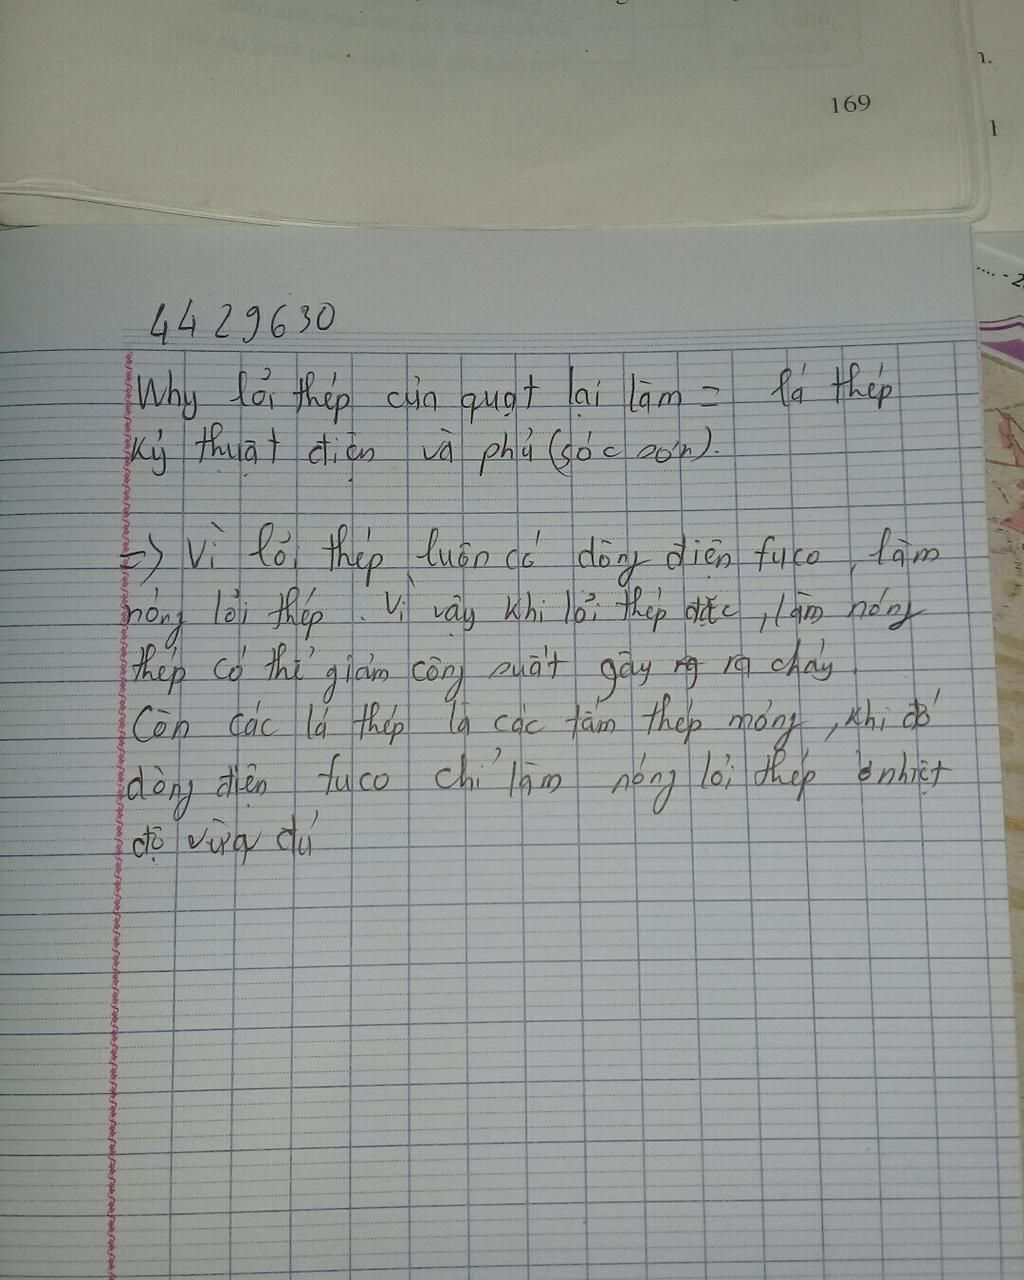 169
4429630
Why lỏi thép của quạt lại làm = lá thép
Kỷ thuật điện và phủ (góc sơn).
=> Vì lỏi thép luôn có dòng điện fuco, làm
nóng lỏi thép. Vì vậy khi lỏi thép đặc, làm nóng
thép có thể giảm công suất gây ra cháy
Còn các lá thép là các tấm thép mỏng, khi đó
dòng điện fuco chỉ làm nóng lỏi thép ở nhiệt
độ vừa đủ